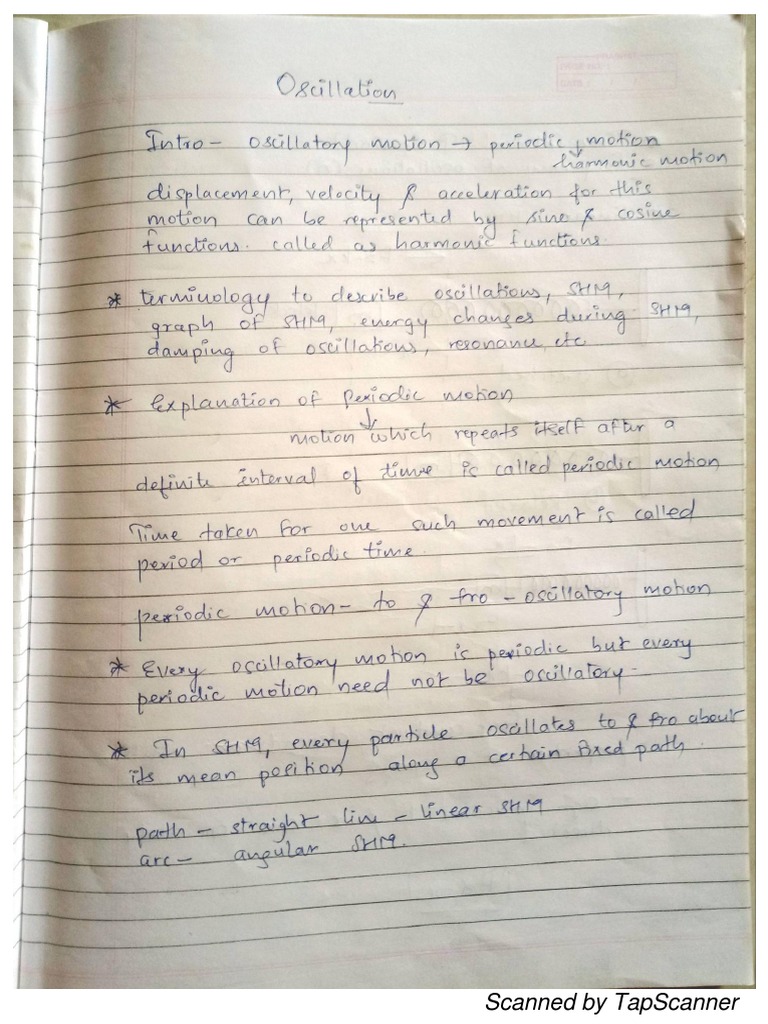 Oscillation
Intro - oscillatory motion → periodic motion
↓
harmonic motion
displacement, velocity & acceleration for this
motion can be represented by sine & cosine
functions. called as harmonic functions.
* terminology to describe oscillations, SHM,
graph of SHM, energy changes during SHM,
damping of oscillations, resonance etc
* Explanation of periodic motion
↓
motion which repeats itself after a
definite interval of time is called periodic motion
Time taken for one such movement is called
period or periodic time.
periodic motion - to & fro - oscillatory motion
* Every oscillatory motion is periodic but every
periodic motion need not be oscillatory.
* In SHM, every particle oscillates to & fro about
its mean position along a certain fixed path.
path - straight line - linear SHM
arc - angular SHM.
Scanned by TapScanner